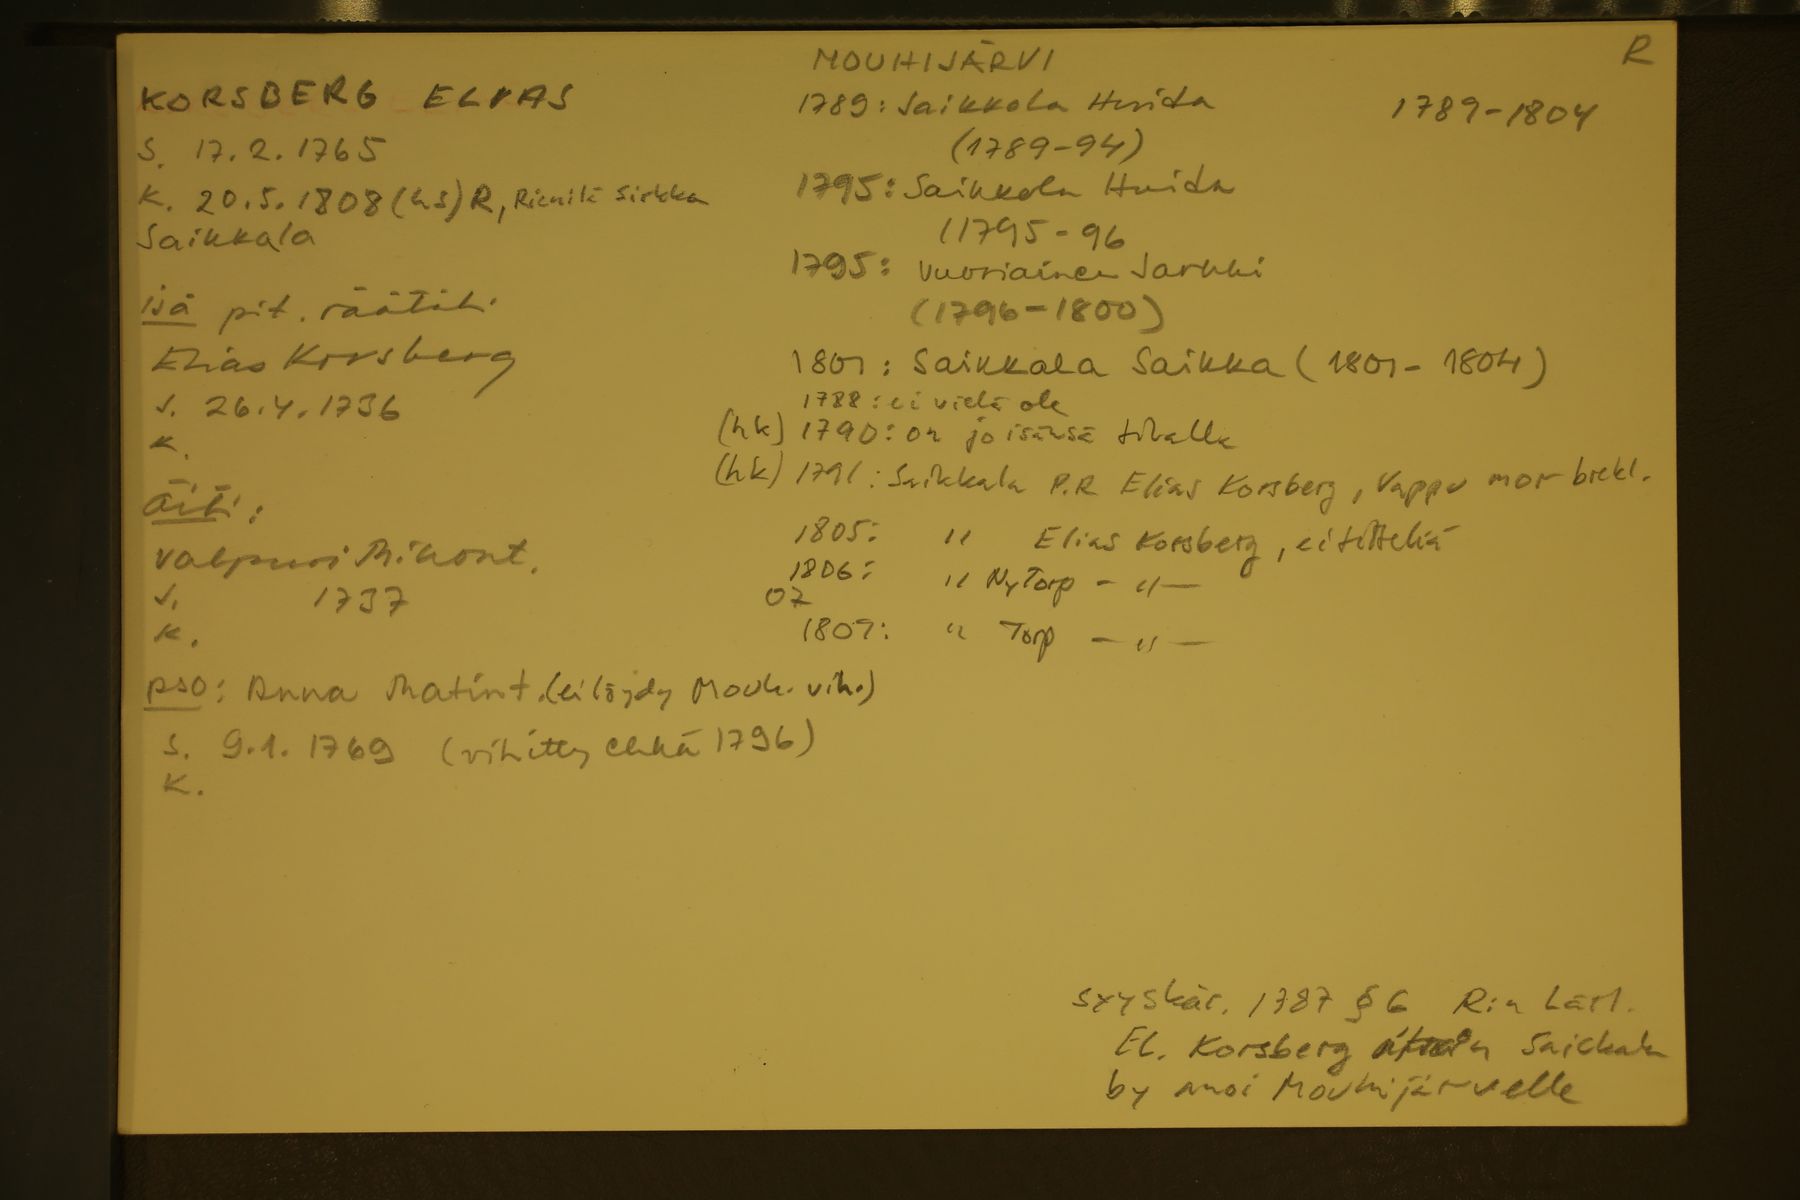 MOUHIJÄRVI
R
KORSBERG ELIAS
S. 17.2.1765
K. 20.5.1808 (hs) R, Rienilä Sirkka
Saikkala
isä pit. räätäli
Elias Korsberg
s. 26.4.1736
K.
äiti:
Valpuri Mikont.
s. 1737
K.
pso: Anna Matint. (ei löydy Mouh. vih.)
s. 9.1.1769 (vihitty ehkä 1796)
K.
1789: Saikkala Huida
1789-1804
(1789-94)
1795: Saikkala Huida
(1795-96
1795: Vuoriainen Jarkki
(1796-1800)
1801: Saikkala Saikka (1801-1804)
1788: ei vielä ole
(hk) 1790: on jo isänsä tilalla
(hk) 1791: Saikkala P.R Elias Korsberg, Vappu mor bräckl.
1805: " Elias Korsberg, ei titteliä
1806: " Ny Torp - " -
07
1807: " Torp - " -
syyskär. 1787 § 6 R:n Lärl.
El. Korsberg Saickala
by anoi Mouhijärvelle